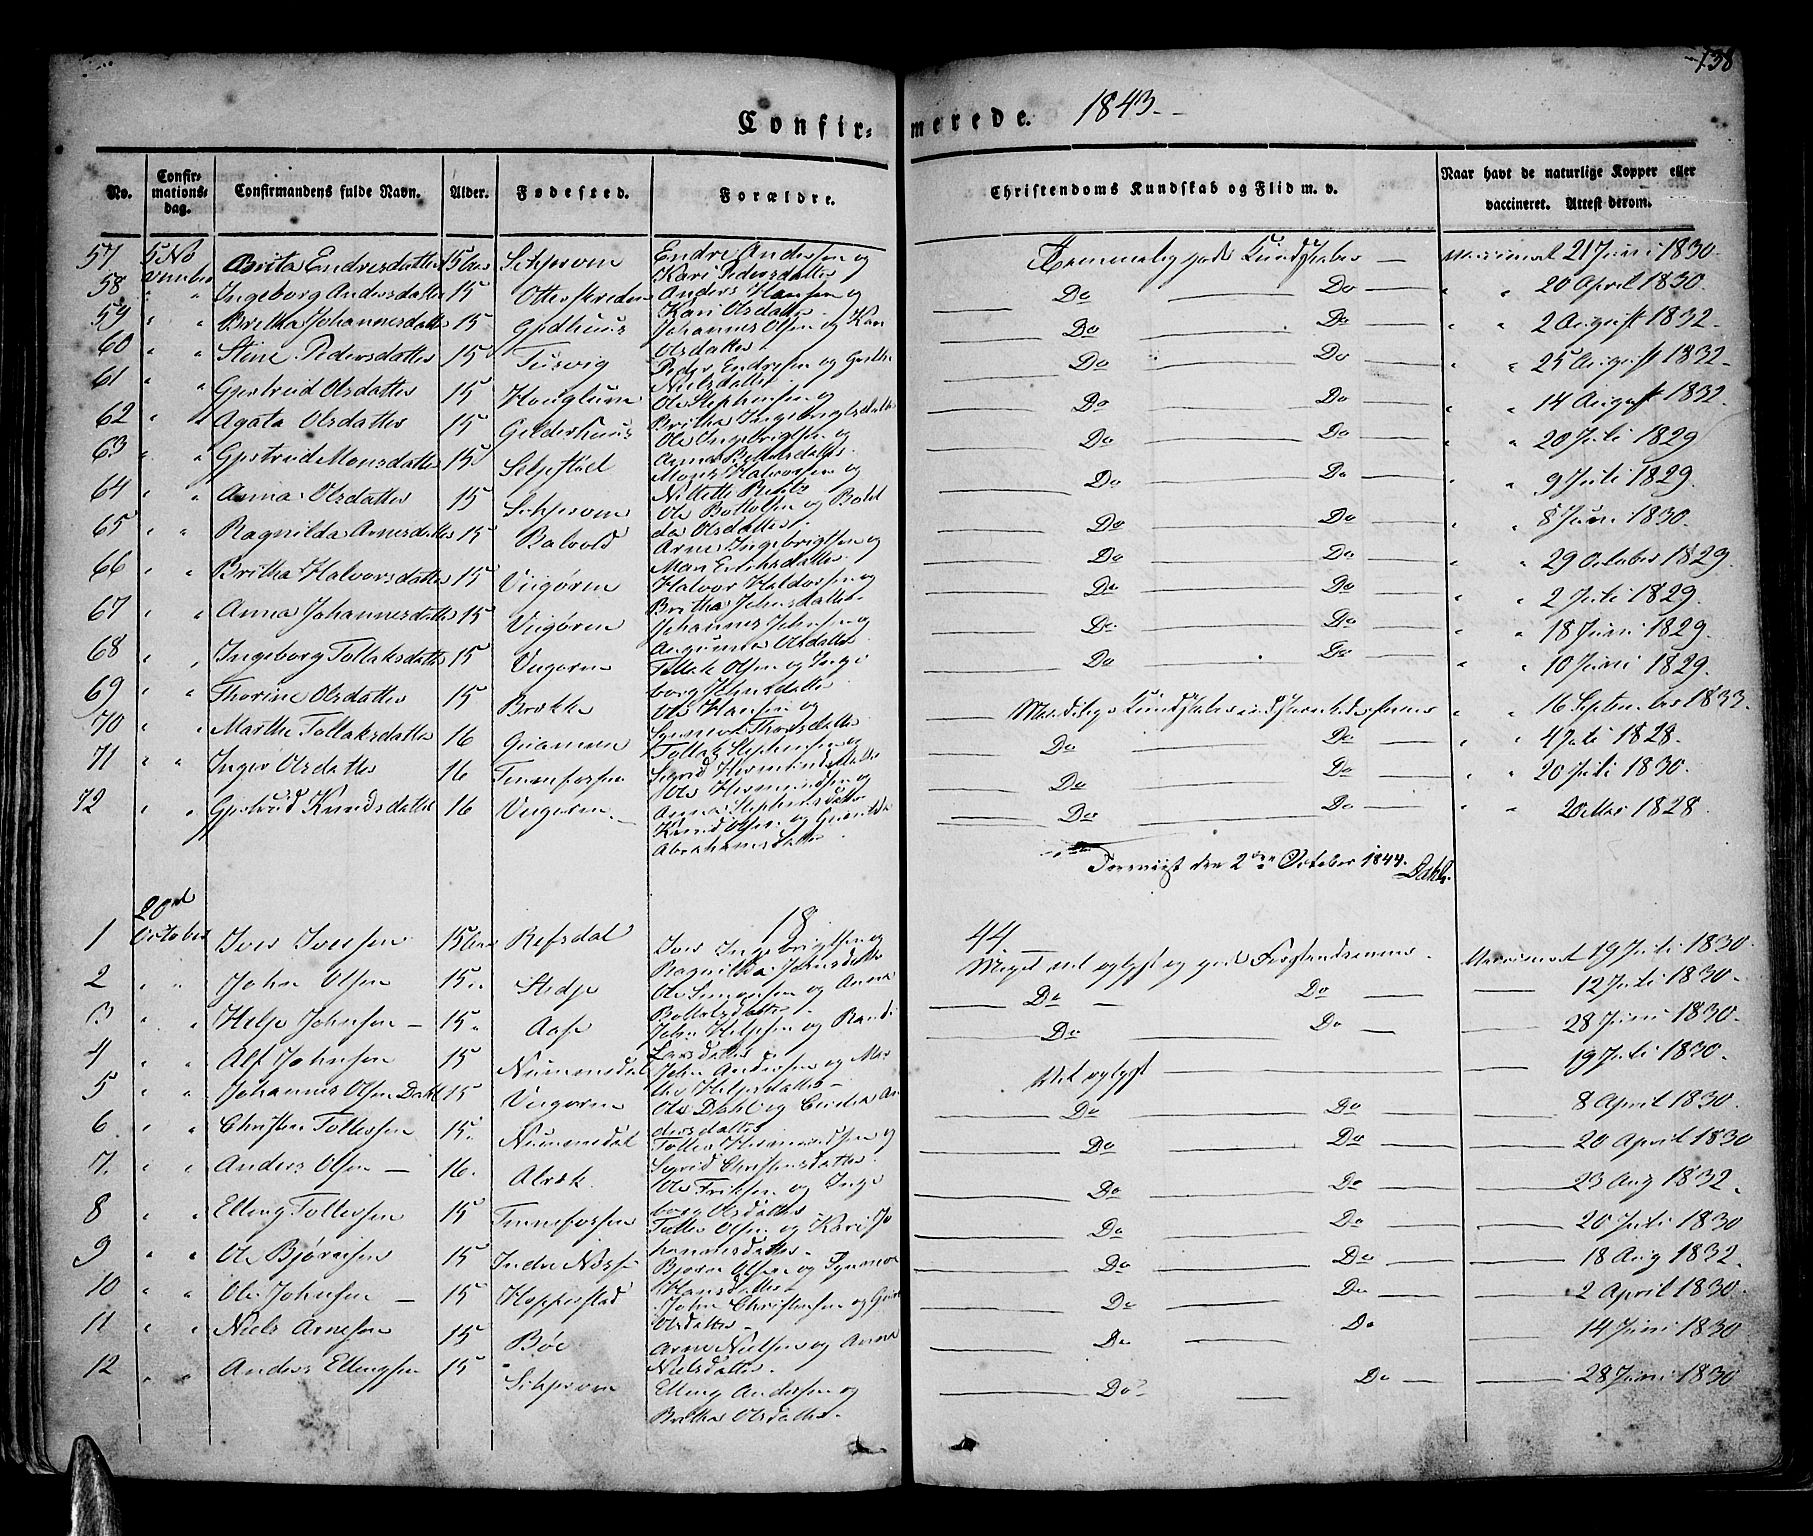 138
Confirmerede. 1843.
No. Confirmationsdag. Confirmandens fulde Navn. Alder. Fødested. Forældre. Christendoms Kundskab og Flid m. v. Naar havt de naturlige Kopper eller vaccineret. Attest derom.
57 5 November Brita Endresdatter 15 Endre Andersen og Kari Pedersdatter Kundskaber 21 Juni 1830.
58 " " Ingeborg Andersdatter 15 Anders Hansen og Kari Olsdatter Do Do " " 20 April 1830.
59 " " Britha Johannesdatter 15 Johannes Olsen og Kari Olsdatter Do Do " " 2 August 1832.
60 " " Stine Pedersdatter 15 Tusvig Peder Endresen og Nielsdatter Do Do " " 25 August 1832.
61 " " Gjertrud Olsdatter 15 Houglum Ole Stephensen og Britha Ingebrigtsdatter Do Do " " 14 August 1832.
62 " " Agata Olsdatter 15 Ole Ingebrigtsen og Anna Do Do " " 20 Juli 1829
63 " " Gjertrud Monsdatter 15 Mons Halvorsen og Do Do " " 9 Juli 1829.
64 " " Anna Olsdatter 15 Ole Bottolsen og Bolda Olsdatter Do Do " " 8 Juni 1830.
65 " " Ragnilda Arnesdatter 15 Balvold Arne Ingebrigtsen og Mari Do Do " " 29 October 1829.
66 " " Britha Halvorsdatter 15 Viigøren Halvor Haldorsen og Britha Johnsdatter Do Do " " 2 Juli 1829.
67 " " Anna Johannesdatter 15 Viigøren Johannes Johnsen og Olsdatter Do Do " " 18 Juni 1829.
68 " " Ingeborg Tollaksdatter 15 Viigøren Tollak Olsen og Ingeborg Johnsdatter Do Do " " 10 Juni 1829.
69 " " Thorine Olsdatter 15 Brække Ole Hansen og Kundskaber " " 16 September 1833.
70 " " Marthe Tollaksdatter 16 Tollak Stephensen og Sigrid Do Do " " 4 Juli 1828.
71 " " Inger Olsdatter 16 Tennefossen Ole Hermundsen og Anna Stephensdatter Do Do " " 20 Juli 1830.
72 " " Gjertrud Knudsdatter 16 Viigøren Knud Olsen og Abrahamsdatter Do Do " " 20 Mai 1828.
den 2den October 1844. Dahl.
1844
1 20de October Iver Iversen 15 Refsdal Iver Ingebrigtsen og Ragnilda Johnsdatter Meget vel oplyst og god 19 Juli 1830.
2 " " John Olsen 15 Stedje Ole Simonsen og Anna Do Do 12 Juli 1830
3 " " Helje Johnsen 15 Aase John Heljesen og Randi Larsdatter Do Do 28 Juni 1830.
4 " " Alf Johnsen 15 Nummedal John Andersen og Marthe Heljesdatter Vel oplyst 19 Juli 1830.
5 " " Johannes Olsen Dahl 15 Viigøren Ole Dahl og Andersdatter Do Do 8 April 1830.
6 " " Christen Tollefsen 15 Nummedal Tollef Hermundsen og Sigrid Christensdatter Do Do 20 April 1830
7 " " Anders Olsen 16. Alræk Ole Eriksen og Ingeborg Olsdatter Do Do 23 Aug 1832.
8 " " Elling Tollefsen 15 Tennefossen Tollef Olsen og Kari Johannesdatter Do Do 20 Juli 1830
9 " " Ole Bjørnsen 15 Indre Bjørn Olsen og Synneve Hansdatter Do Do 18 Aug 1832.
10 " " Ole Johnsen 15 Hopperstad John Christensen og Olsdatter Do Do 2 April 1830.
11 " " Niels Arnesen 15 Böe Arne Nielsen og Anna Nielsdatter Do Do 14 Juni 1830
12 " " Anders Ellingsen 15 Elling Andersen og Britha Olsdatter Do Do 28 Juni 1830